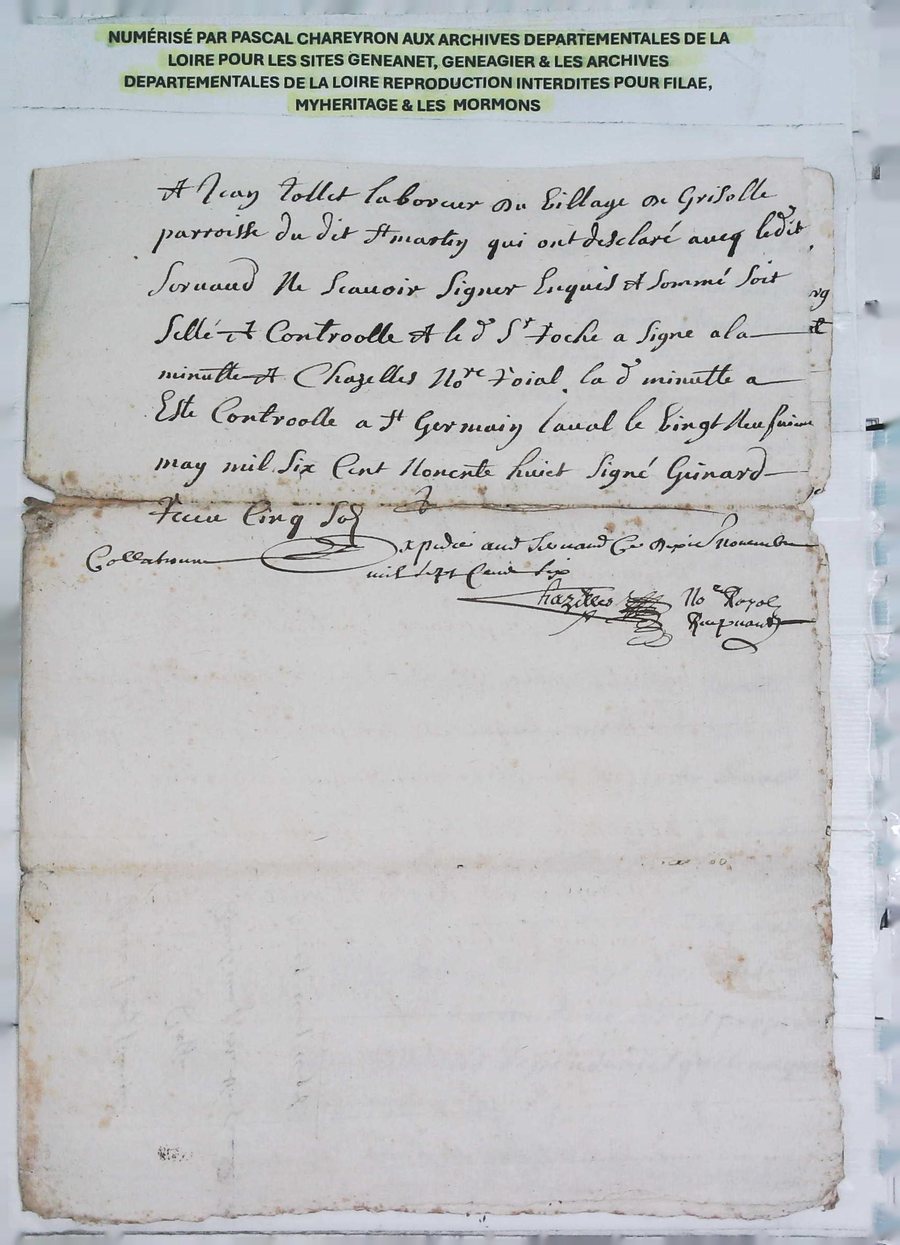 NUMÉRISÉ PAR PASCAL CHAREYRON AUX ARCHIVES DEPARTEMENTALES DE LA
LOIRE POUR LES SITES GENEANET, GENEAGIER & LES ARCHIVES
DEPARTEMENTALES DE LA LOIRE REPRODUCTION INTERDITES POUR FILAE,
MYHERITAGE & LES MORMONS
Et Jean laboreur du Village de Grisolle
parroisse du dit St martin qui ont desclaré aueq ledit
ne Scauoir Signer Enquis et Sommé Soit
Sellé et Controolle et le d Sr Roche a Signe a la
minutte et Chazelles Nore Roial. la d minutte a
Esté Controolle a St Germain Laual le Vingt Neufuieme
may mil Six Cent Nonente huict Signé Guinard
Receu Cinq Sol
Collationne
Expedie aud
mil Sept Cent Six
Chazelles Nore Royal